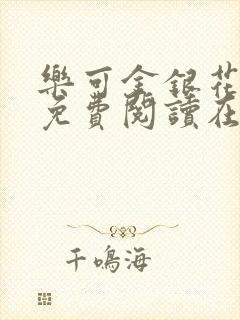 樂可金銀花
免費閱讀在
千鳴海